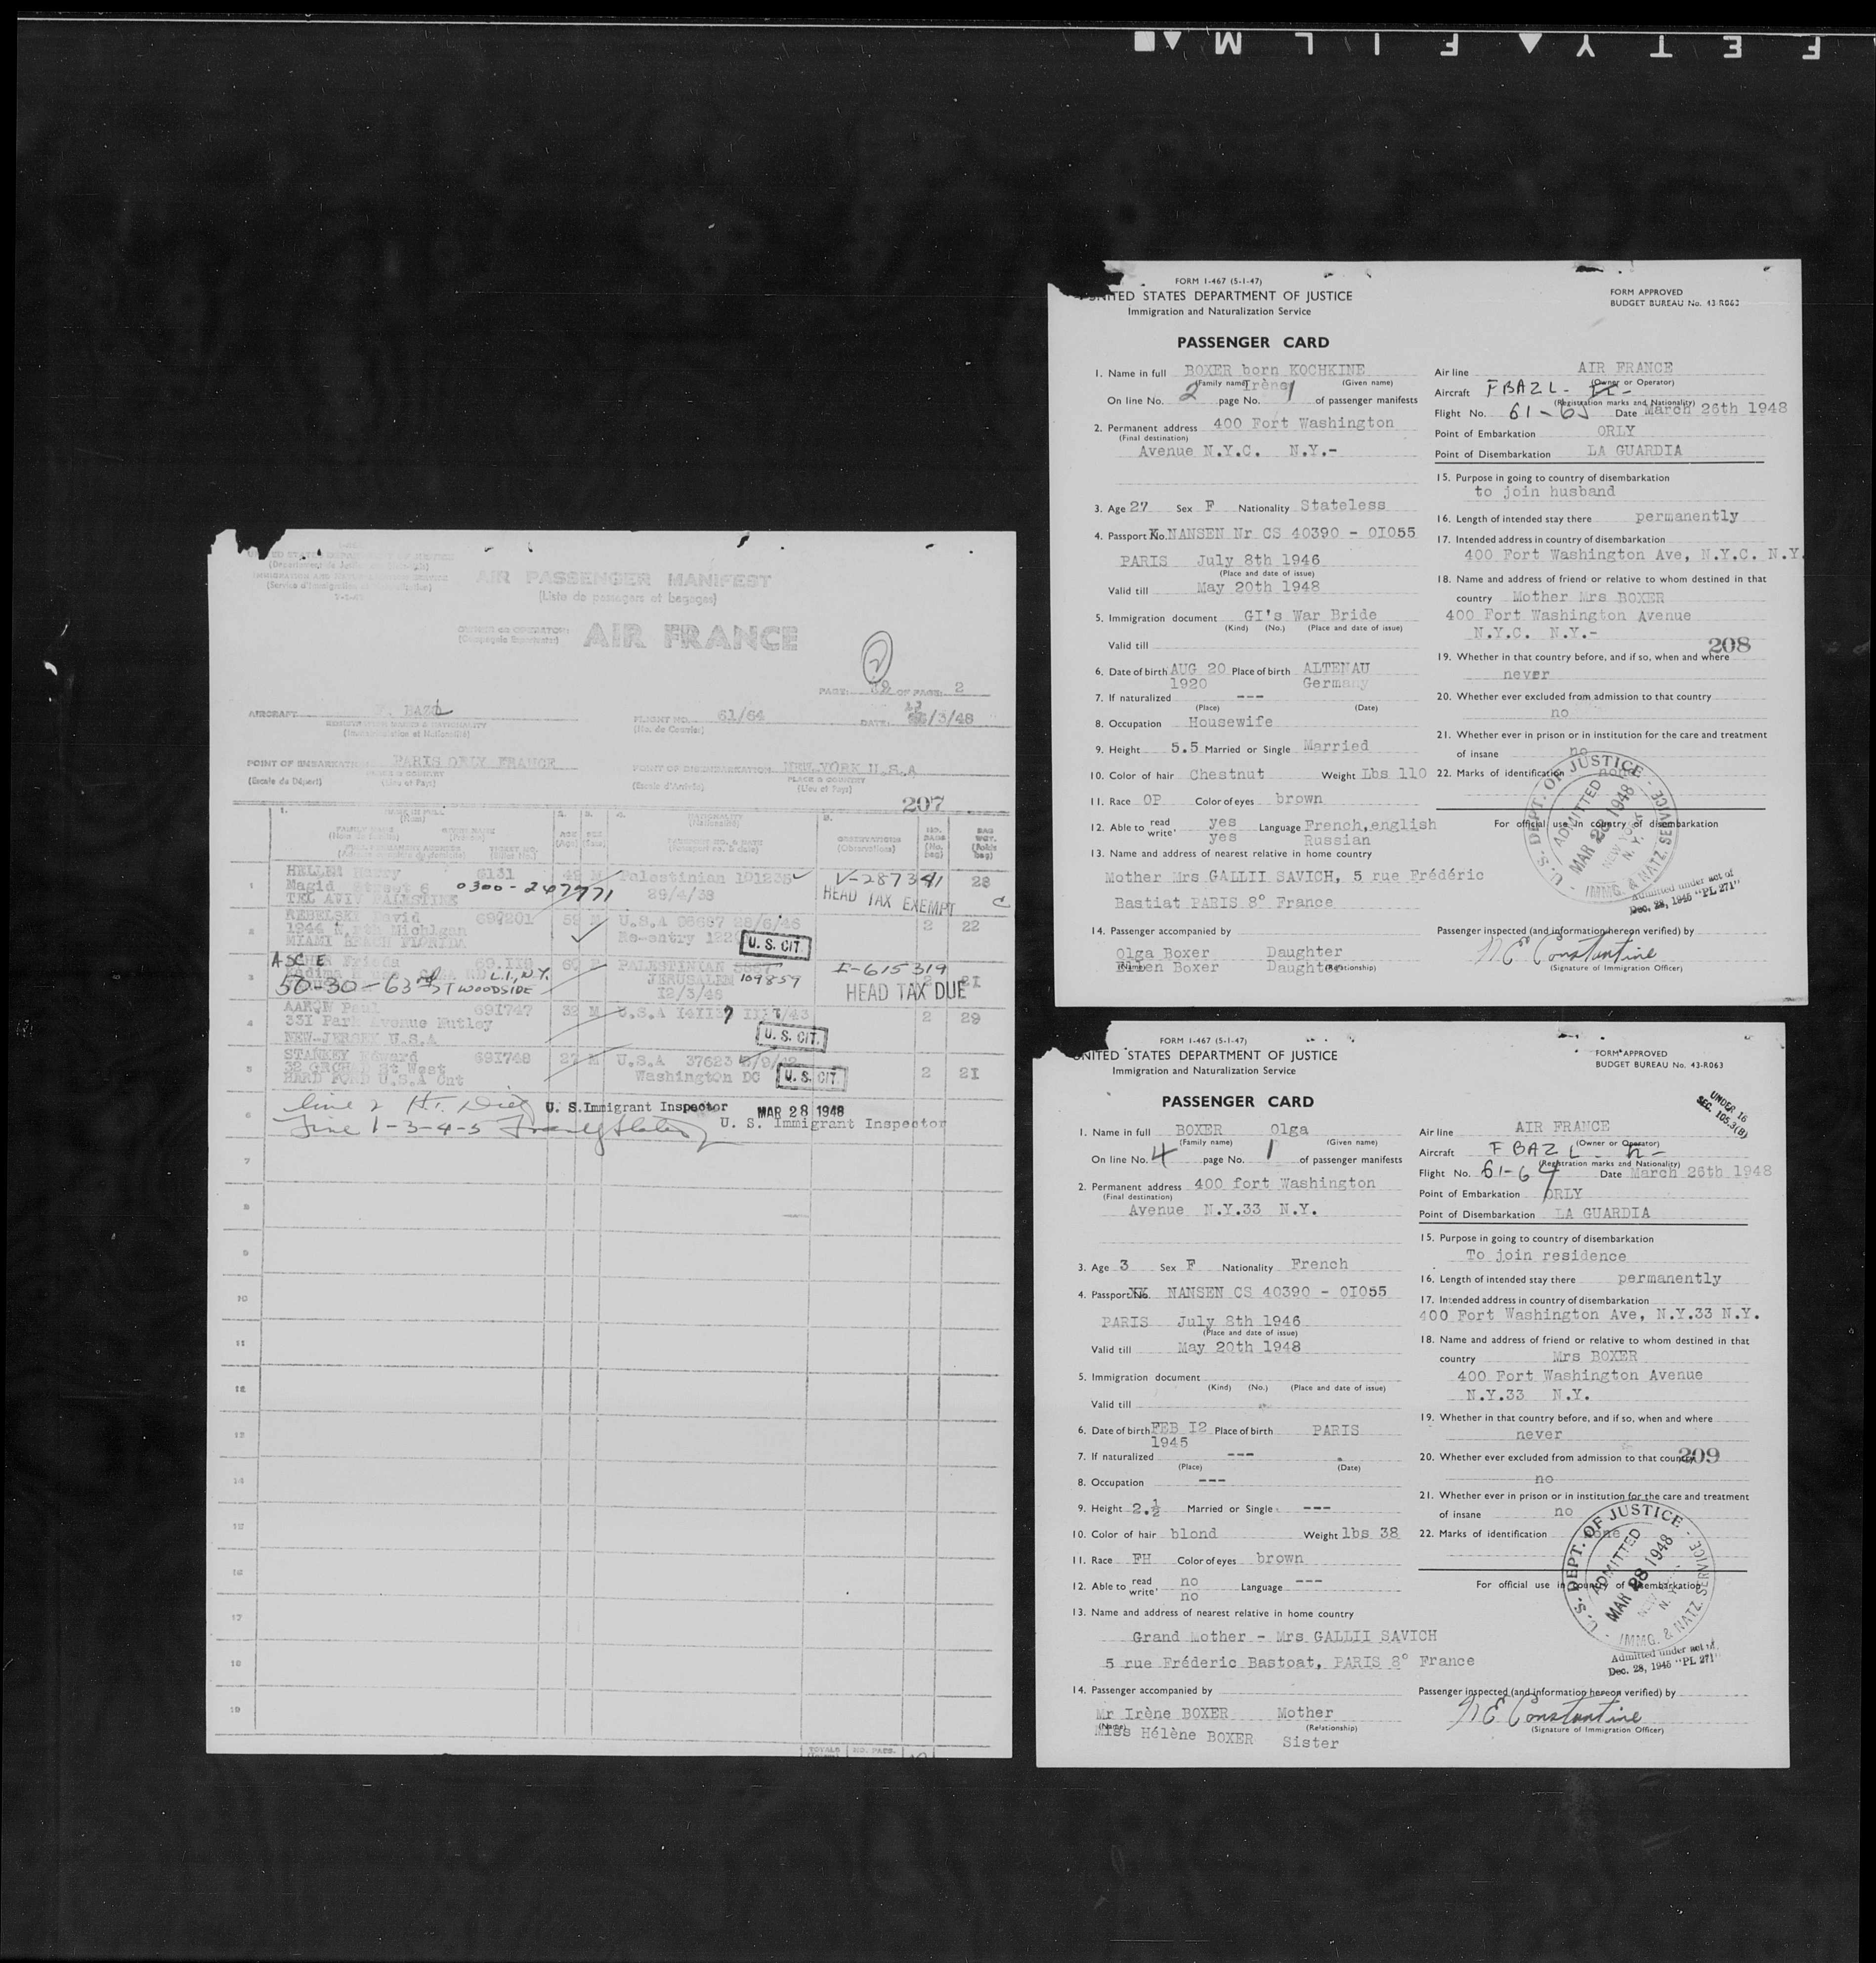 FETY FILM
AIR PASSENGER MANIFEST
(Liste de passagers et bagages)
OWNER or OPERATOR:
AIR FRANCE
2
PAGE: OF PAGE: 2
AIRCRAFT
FLIGHT NO. 61/64 DATE: /3/48
(No. de Courrier)
POINT OF EMBARKATION PARIS ORLY FRANCE
(Escale de Départ) (Lieu et Pays)
POINT OF DISEMBARKATION NEW YORK U.S.A
(Escale d'Arrivée) (Lieu et Pays)
207
1 HELLER Harry 6131 49 M Palestinian 101235 V-287341 28
Magid Street 6 0300-247771 29/4/38 HEAD TAX EXEMPT C
TEL AVIV PALESTINE
2 REBELSKI David 697201 59 M U.S.A 2 22
1944 N.rth Michigan Re-entry U. S. CIT.
MIAMI BEACH FLORIDA
3 ASCHE Frieda 69.110 PALESTINIAN I-615319
L.I, N.Y. JERUSALEM 109859 2 21
50-30-63rd ST WOODSIDE 12/3/48 HEAD TAX DUE
4 AARON Paul 691747 32 M U.S.A 2 29
331 Park Avenue Nutley
NEW-JERSEY U.S.A U. S. CIT.
5 STANKEY Edward 691748 27 M U.S.A 37623
32 ORCHARD St West Washington DC U. S. CIT. 2 21
HARD FORD U.S.A Cnt
6 Line 2 U. S. Immigrant Inspector MAR 28 1948
Line 1-3-4-5 U. S. Immigrant Inspector
7
8
9
10
11
12
13
14
15
16
17
18
19
TOTALS NO. PASS.
FORM I-467 (5-1-47)
UNITED STATES DEPARTMENT OF JUSTICE
Immigration and Naturalization Service
FORM APPROVED
BUDGET BUREAU No. 43-R063
PASSENGER CARD
1. Name in full BOXER born KOCHKINE
(Family name) Irène (Given name)
On line No. 2 page No. 1 of passenger manifests
2. Permanent address 400 Fort Washington
(Final destination)
Avenue N.Y.C. N.Y.-
3. Age 27 Sex F Nationality Stateless
4. Passport No. NANSEN Nr CS 40390 - 01055
PARIS July 8th 1946
(Place and date of issue)
Valid till May 20th 1948
5. Immigration document GI's War Bride
(Kind) (No.) (Place and date of issue)
Valid till
6. Date of birth AUG 20 Place of birth ALTENAU
1920 Germany
7. If naturalized ---
(Place) (Date)
8. Occupation Housewife
9. Height 5.5 Married or Single Married
10. Color of hair Chestnut Weight Lbs 110
11. Race OP Color of eyes brown
12. Able to read yes Language French,english
write yes Russian
13. Name and address of nearest relative in home country
Mother Mrs GALLII SAVICH, 5 rue Frédéric
Bastiat PARIS 8° France
14. Passenger accompanied by
Olga Boxer Daughter
Boxer Daughter
(Name) (Relationship)
Air line AIR FRANCE
(Owner or Operator)
Aircraft FBAZL-
(Registration marks and Nationality)
Flight No. Date March 26th 1948
Point of Embarkation ORLY
Point of Disembarkation LA GUARDIA
15. Purpose in going to country of disembarkation
to join husband
16. Length of intended stay there permanently
17. Intended address in country of disembarkation
400 Fort Washington Ave, N.Y.C. N.Y.
18. Name and address of friend or relative to whom destined in that
country Mother Mrs BOXER
400 Fort Washington Avenue
N.Y.C. N.Y.-
208
19. Whether in that country before, and if so, when and where
never
20. Whether ever excluded from admission to that country
no
21. Whether ever in prison or in institution for the care and treatment
of insane no
22. Marks of identification none
U. S. DEPT. OF JUSTICE
ADMITTED
MAR 28 1948
NEW YORK
N. Y.
IMMG. & NATZ. SERVICE
For official use in country of disembarkation
Admitted under act of
Dec. 28, 1945 "PL 271"
Passenger inspected (and information hereon verified) by
Constantine
(Signature of Immigration Officer)
FORM I-467 (5-1-47)
UNITED STATES DEPARTMENT OF JUSTICE
Immigration and Naturalization Service
FORM APPROVED
BUDGET BUREAU No. 43-R063
UNDER 16
SEC. 105.3(B)
PASSENGER CARD
1. Name in full BOXER Olga
(Family name) (Given name)
On line No. 4 page No. 1 of passenger manifests
2. Permanent address 400 fort Washington
(Final destination)
Avenue N.Y.33 N.Y.
3. Age 3 Sex F Nationality French
4. Passport No. NANSEN CS 40390 - 01055
PARIS July 8th 1946
(Place and date of issue)
Valid till May 20th 1948
5. Immigration document
(Kind) (No.) (Place and date of issue)
Valid till
6. Date of birth FEB 12 Place of birth PARIS
1945
7. If naturalized ---
(Place) (Date)
8. Occupation ---
9. Height 2.½ Married or Single ---
10. Color of hair blond Weight lbs 38
11. Race FH Color of eyes brown
12. Able to read no Language ---
write no
13. Name and address of nearest relative in home country
Grand Mother - Mrs GALLII SAVICH
5 rue Fréderic Bastoat, PARIS 8° France
14. Passenger accompanied by
Mr Irène BOXER Mother
(Name) (Relationship)
Miss Hélène BOXER Sister
Air line AIR FRANCE
(Owner or Operator)
Aircraft FBAZL-
(Registration marks and Nationality)
Flight No. 61-64 Date March 26th 1948
Point of Embarkation ORLY
Point of Disembarkation LA GUARDIA
15. Purpose in going to country of disembarkation
To join residence
16. Length of intended stay there permanently
17. Intended address in country of disembarkation
400 Fort Washington Ave, N.Y.33 N.Y.
18. Name and address of friend or relative to whom destined in that
country Mrs BOXER
400 Fort Washington Avenue
N.Y.33 N.Y.
19. Whether in that country before, and if so, when and where
never
20. Whether ever excluded from admission to that country
209
no
21. Whether ever in prison or in institution for the care and treatment
of insane no
22. Marks of identification none
U. S. DEPT. OF JUSTICE
ADMITTED
MAR 28 1948
NEW YORK
N. Y.
IMMG. & NATZ. SERVICE
For official use in country of disembarkation
Admitted under act of
Dec. 28, 1945 "PL 271"
Passenger inspected (and information hereon verified) by
Constantine
(Signature of Immigration Officer)